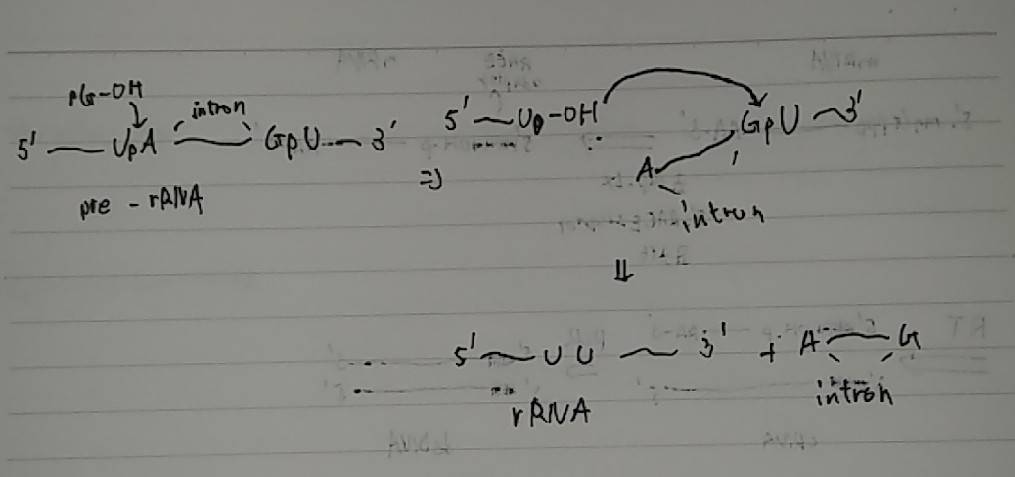 pG-OH
intron
5' UpA GpU 3'
pre - rRNA
⇒
5' Up-OH GpU 3'
A
intron
⇓
5' U U 3' + A G
rRNA intron